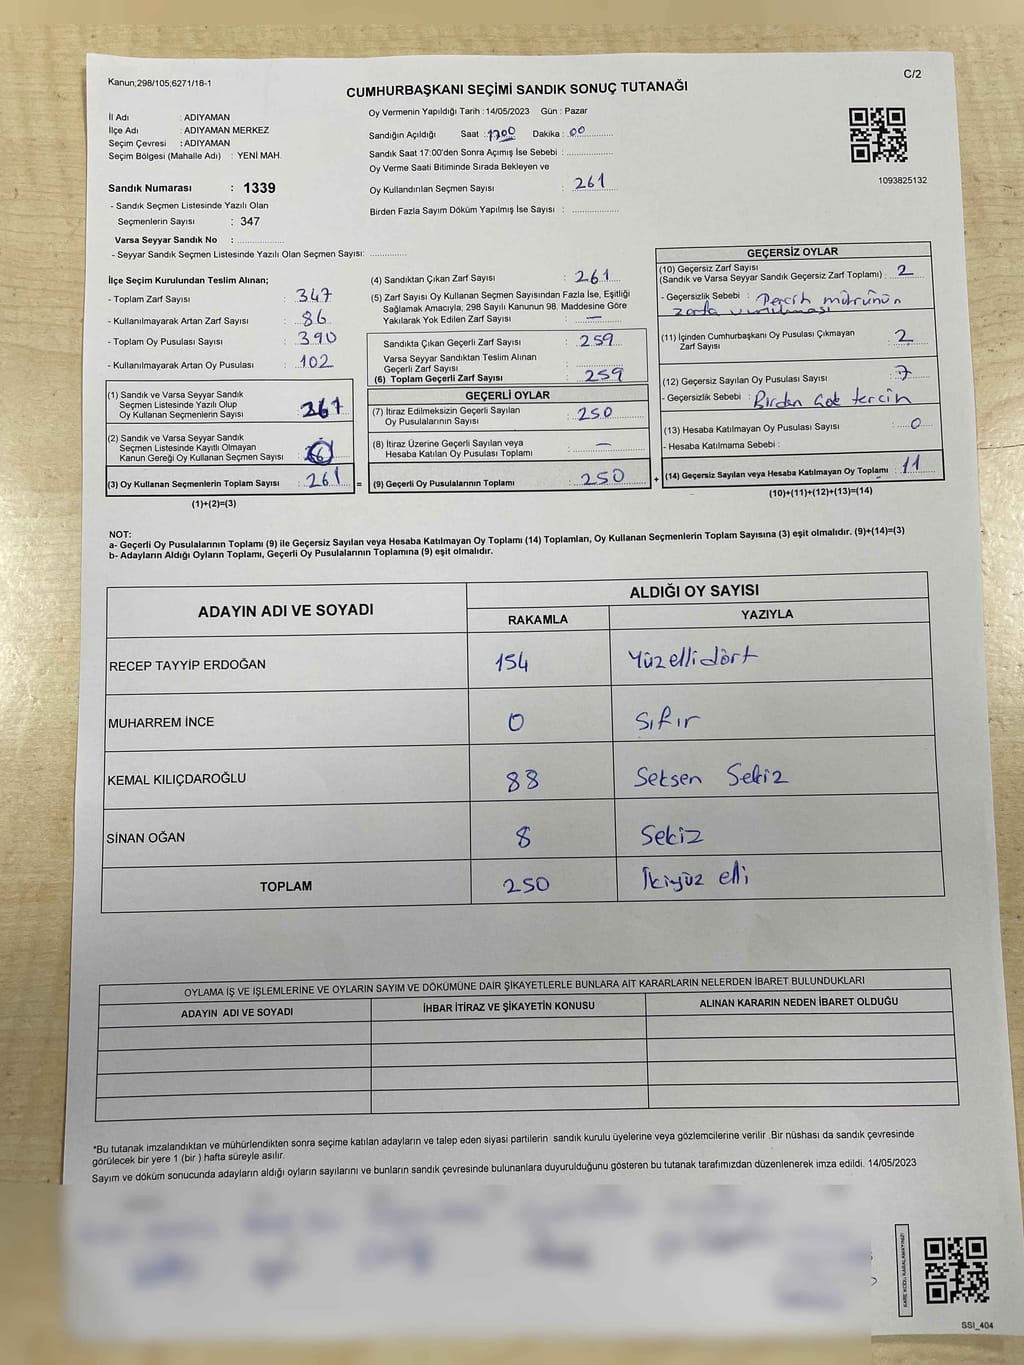 Kanun;298/105;6271/18-1
C/2
CUMHURBAŞKANI SEÇİMİ SANDIK SONUÇ TUTANAĞI
İl Adı : ADIYAMAN
İlçe Adı : ADIYAMAN MERKEZ
Seçim Çevresi : ADIYAMAN
Seçim Bölgesi (Mahalle Adı) : YENİ MAH.
Sandık Numarası : 1339
- Sandık Seçmen Listesinde Yazılı Olan
Seçmenlerin Sayısı : 347
Varsa Seyyar Sandık No : ..............
- Seyyar Sandık Seçmen Listesinde Yazılı Olan Seçmen Sayısı: ............
Oy Vermenin Yapıldığı Tarih : 14/05/2023 Gün : Pazar
Sandığın Açıldığı Saat : 1700 Dakika : 00
Sandık Saat 17:00'den Sonra Açılmış İse Sebebi : ..............
Oy Verme Saati Bitiminde Sırada Bekleyen ve
Oy Kullandırılan Seçmen Sayısı : 261
Birden Fazla Sayım Döküm Yapılmış İse Sayısı : ..............
1093825132
İlçe Seçim Kurulundan Teslim Alınan;
- Toplam Zarf Sayısı : 347
- Kullanılmayarak Artan Zarf Sayısı : 86
- Toplam Oy Pusulası Sayısı : 390
- Kullanılmayarak Artan Oy Pusulası : 102
(1) Sandık ve Varsa Seyyar Sandık
Seçmen Listesinde Yazılı Olup
Oy Kullanan Seçmenlerin Sayısı : 261
(2) Sandık ve Varsa Seyyar Sandık
Seçmen Listesinde Kayıtlı Olmayan
Kanun Gereği Oy Kullanan Seçmen Sayısı :
(3) Oy Kullanan Seçmenlerin Toplam Sayısı : 261
(1)+(2)=(3)
=
(4) Sandıktan Çıkan Zarf Sayısı : 261
(5) Zarf Sayısı Oy Kullanan Seçmen Sayısından Fazla İse, Eşitliği
Sağlamak Amacıyla, 298 Sayılı Kanunun 98. Maddesine Göre
Yakılarak Yok Edilen Zarf Sayısı : —
Sandıkta Çıkan Geçerli Zarf Sayısı : 259
Varsa Seyyar Sandıktan Teslim Alınan
Geçerli Zarf Sayısı :
(6) Toplam Geçerli Zarf Sayısı : 259
GEÇERLİ OYLAR
(7) İtiraz Edilmeksizin Geçerli Sayılan
Oy Pusulalarının Sayısı : 250
(8) İtiraz Üzerine Geçerli Sayılan veya
Hesaba Katılan Oy Pusulası Toplamı : —
(9) Geçerli Oy Pusulalarının Toplamı : 250
+
GEÇERSİZ OYLAR
(10) Geçersiz Zarf Sayısı
(Sandık ve Varsa Seyyar Sandık Geçersiz Zarf Toplamı) : 2
- Geçersizlik Sebebi : Percih mührünün
zarfa vurulması
(11) İçinden Cumhurbaşkanı Oy Pusulası Çıkmayan
Zarf Sayısı : 2
(12) Geçersiz Sayılan Oy Pusulası Sayısı : 7
- Geçersizlik Sebebi : Birden çok tercih
(13) Hesaba Katılmayan Oy Pusulası Sayısı : 0
- Hesaba Katılmama Sebebi :
(14) Geçersiz Sayılan veya Hesaba Katılmayan Oy Toplamı : 11
(10)+(11)+(12)+(13)=(14)
NOT:
a- Geçerli Oy Pusulalarının Toplamı (9) ile Geçersiz Sayılan veya Hesaba Katılmayan Oy Toplamı (14) Toplamları, Oy Kullanan Seçmenlerin Toplam Sayısına (3) eşit olmalıdır. (9)+(14)=(3)
b- Adayların Aldığı Oyların Toplamı, Geçerli Oy Pusulalarının Toplamına (9) eşit olmalıdır.
ADAYIN ADI VE SOYADI
ALDIĞI OY SAYISI
RAKAMLA YAZIYLA
RECEP TAYYİP ERDOĞAN 154 Yüzellidört
MUHARREM İNCE 0 Sıfır
KEMAL KILIÇDAROĞLU 88 Seksen Sekiz
SİNAN OĞAN 8 Sekiz
TOPLAM 250 İkiyüz elli
OYLAMA İŞ VE İŞLEMLERİNE VE OYLARIN SAYIM VE DÖKÜMÜNE DAİR ŞİKAYETLERLE BUNLARA AİT KARARLARIN NELERDEN İBARET BULUNDUKLARI
ADAYIN ADI VE SOYADI İHBAR İTİRAZ VE ŞİKAYETİN KONUSU ALINAN KARARIN NEDEN İBARET OLDUĞU
*Bu tutanak imzalandıktan ve mühürlendikten sonra seçime katılan adayların ve talep eden siyasi partilerin sandık kurulu üyelerine veya gözlemcilerine verilir .Bir nüshası da sandık çevresinde
görülecek bir yere 1 (bir ) hafta süreyle asılır.
Sayım ve döküm sonucunda adayların aldığı oyların sayılarını ve bunların sandık çevresinde bulunanlara duyurulduğunu gösteren bu tutanak tarafımızdan düzenlenerek imza edildi. 14/05/2023
KARE KODU KARALAMAYINIZ!
SSI_404